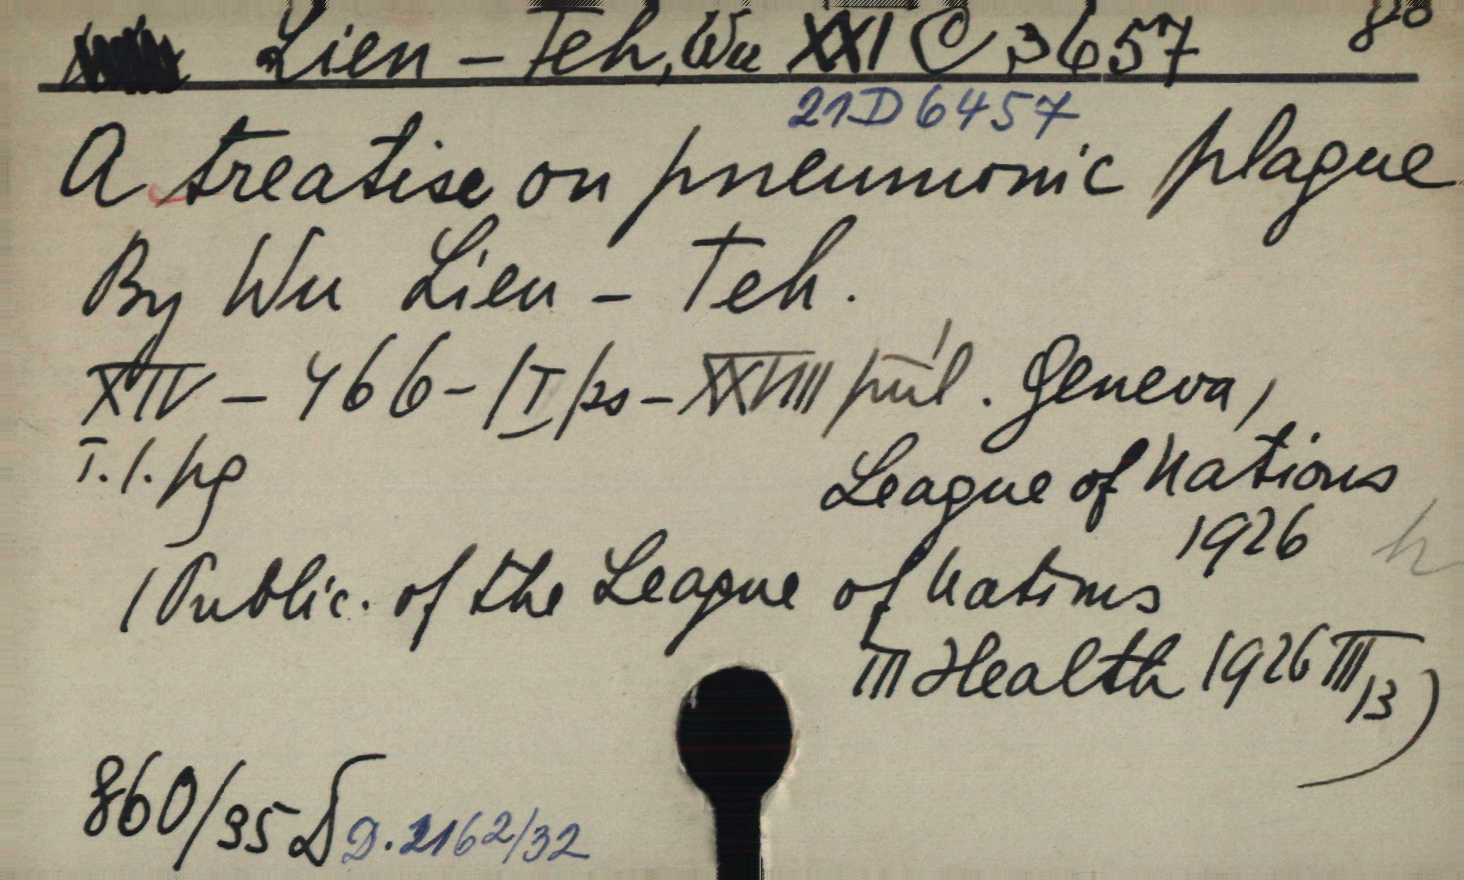 Lien-Teh, Wu XXI C 3657 8°
21D6457
A treatise on pneumonic plague
By Wu Lien-Teh.
XIV-466-/I/ps-XXVIII púl. Geneva,
T.1.pg League of Nations
1926
(Public. of the League of Nations
III Health 1926 III/13)
860/35 D D.2162/32